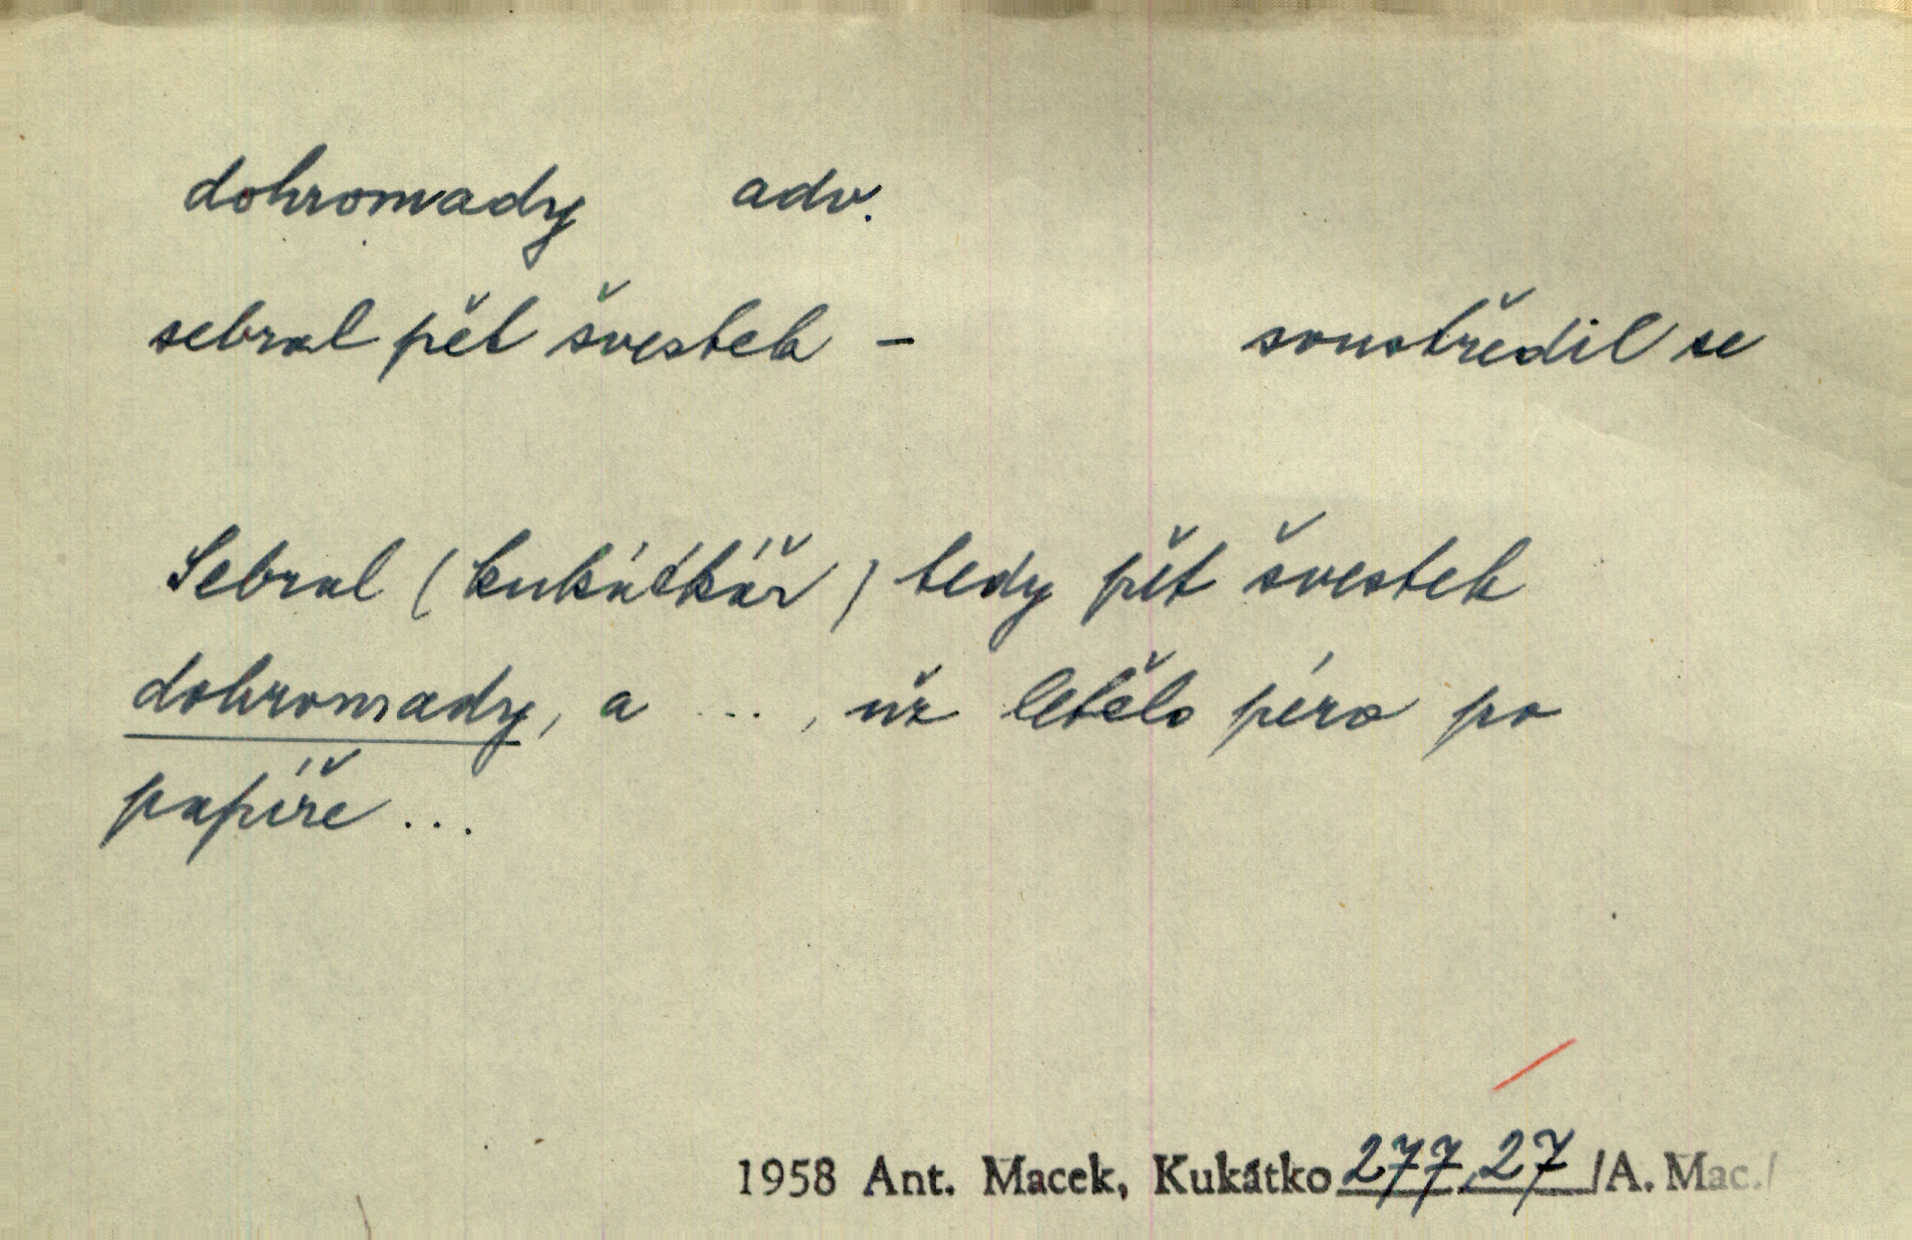 dohromady adv.
sebral pět švestek – soustředil se
Sebral (kukátkář) tedy pět švestek
dohromady, a ..., už letělo péro po
papíře ...
1958 Ant. Macek, Kukátko 277,27 /A. Mac./